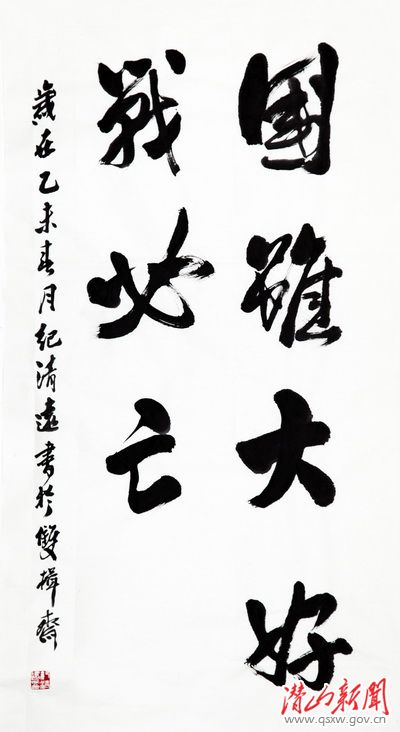 國雖大好
戰必亡
歲在乙未春月紀清遠書於雙揖齋
潜山新闻
www.qsxw.gov.cn